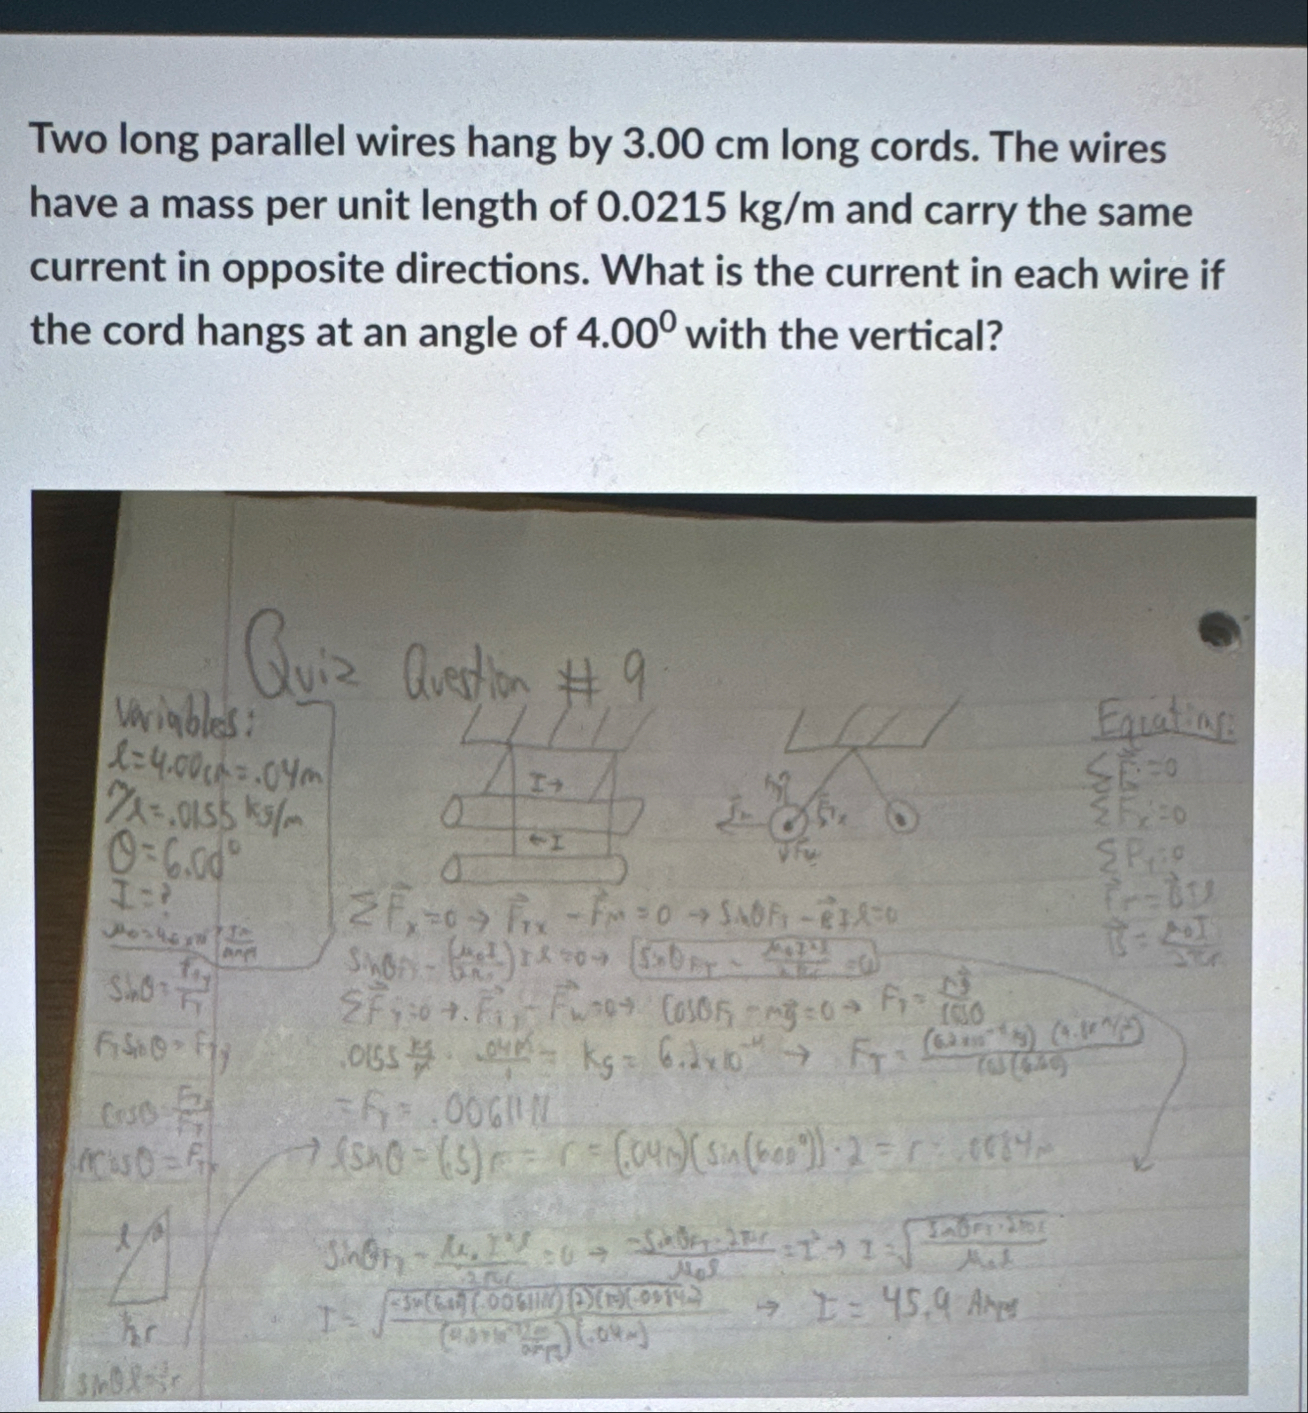 Two long parallel wires hang by 3.00 cm long cords. The wires
have a mass per unit length of 0.0215 kg/m and carry the same
current in opposite directions. What is the current in each wire if
the cord hangs at an angle of 4.00⁰ with the vertical?
Quiz Question # 9
Variables:
l=4.00cm=.04m
m/l=.0155 kg/m
θ=6.00°
I=?
sinθ=
F_T sinθ=F_Ty
cosθ=
I→
←I
Equations:
ΣF=0
ΣF_x=0
ΣF_y=0
B=μ₀I/2πr
ΣF_x=0→F_Tx-F_M=0→sinθF_T-BIl=0
sinθF_T-(μ₀I/2πr)Il=0→sinθF_T-μ₀I²l/2πr=0
ΣF_y=0→F_Ty-F_w=0→cosθF_T-mg=0→F_T=mg/cosθ
.0155 kg/m · .04m/1=kg=6.2x10⁻⁴→F_T=(6.2x10⁻⁴kg)(9.8m/s²)/cos(6.00)
=F_T=.00611N
→lsinθ=(.5)r=r=(.04m)(sin(6.00°))·2=r=.0084m
l
θ
½r
sinθl=½r
sinθF_T-μ₀I²l/2πr=0→-sinθF_T·2πr/μ₀l=I²→I=√sinθF_T·2πr/μ₀l
I=√-sin(6.00)(.00611N)(2)(π)(.0084)/(.04m)→I=45.9 Amps